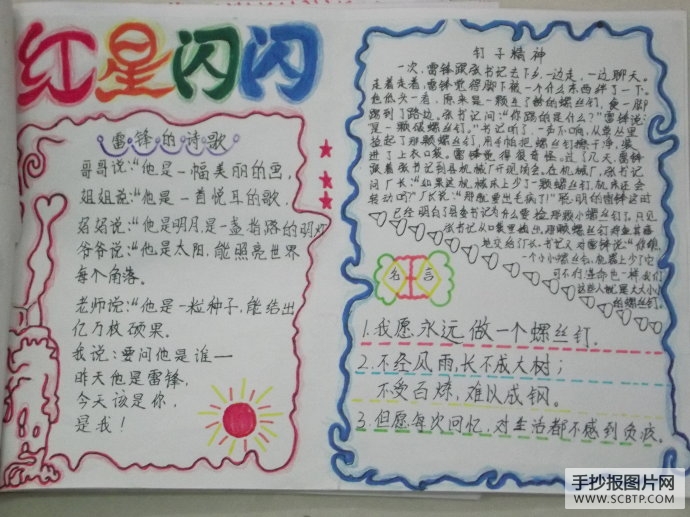 红星闪闪
雷锋的诗歌
哥哥说:“他是一幅美丽的画,
姐姐说:“他是一首悦耳的歌,
妈妈说:“他是明月是一盏指路的明灯
爷爷说:“他是太阳,能照亮世界
每个角落。
老师说:“他是一粒种子,能结出
亿万枚硕果。
我说:要问他是谁一
昨天他是雷锋,
今天该是你,
是我!
钉子精神
一次,雷锋跟张书记去下乡,一边走,一边聊天。
走着走着,雷锋觉得脚下被一个什么东西绊了一下。
他低头一看,原来是一颗生了锈的螺丝钉,便一脚
踢到了路边,张书记问:“你踢的是什么?”雷锋说:
“是一颗破螺丝钉,”书记听了,一声不响,从草丛里
拾起了那颗螺丝钉,用手帕把螺丝钉擦干净,装
进了上衣口袋。雷锋觉得很奇怪。过了几天,雷锋
跟着张书记到县机械厂开现场会。在机械厂,张书记
问厂长:“如果这机械床上少了一颗螺丝钉,机床还会
转动吗?”厂长说:“那就要出毛病了!”聪明的雷锋这时
已经明白了县委书记为什么要捡那颗小螺丝钉。只见
张书记从口袋里
地交给了厂长。书记又对雷锋说:“你瞧,
一个小小螺丝钉,机器上少了它
可不行
名言
1.我愿永远做一个螺丝钉.
2.不经风雨,长不成大树;
不受百炼,难以成钢。
3.但愿每次回忆,对生活都不感到负疚。
手抄报图片网
WWW.SCBTP.COM